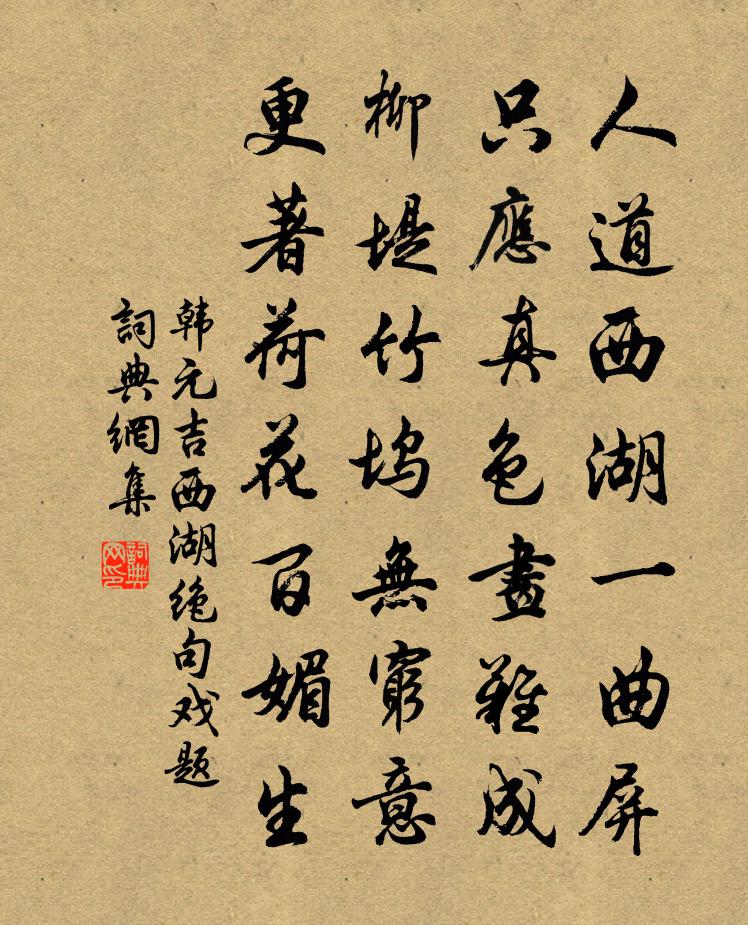 人道西湖一曲屏
只應真色畫難成
柳堤竹塢無窮意
更著荷花百媚生
韩元吉西湖绝句戏题
詞典網集
詞典
网印